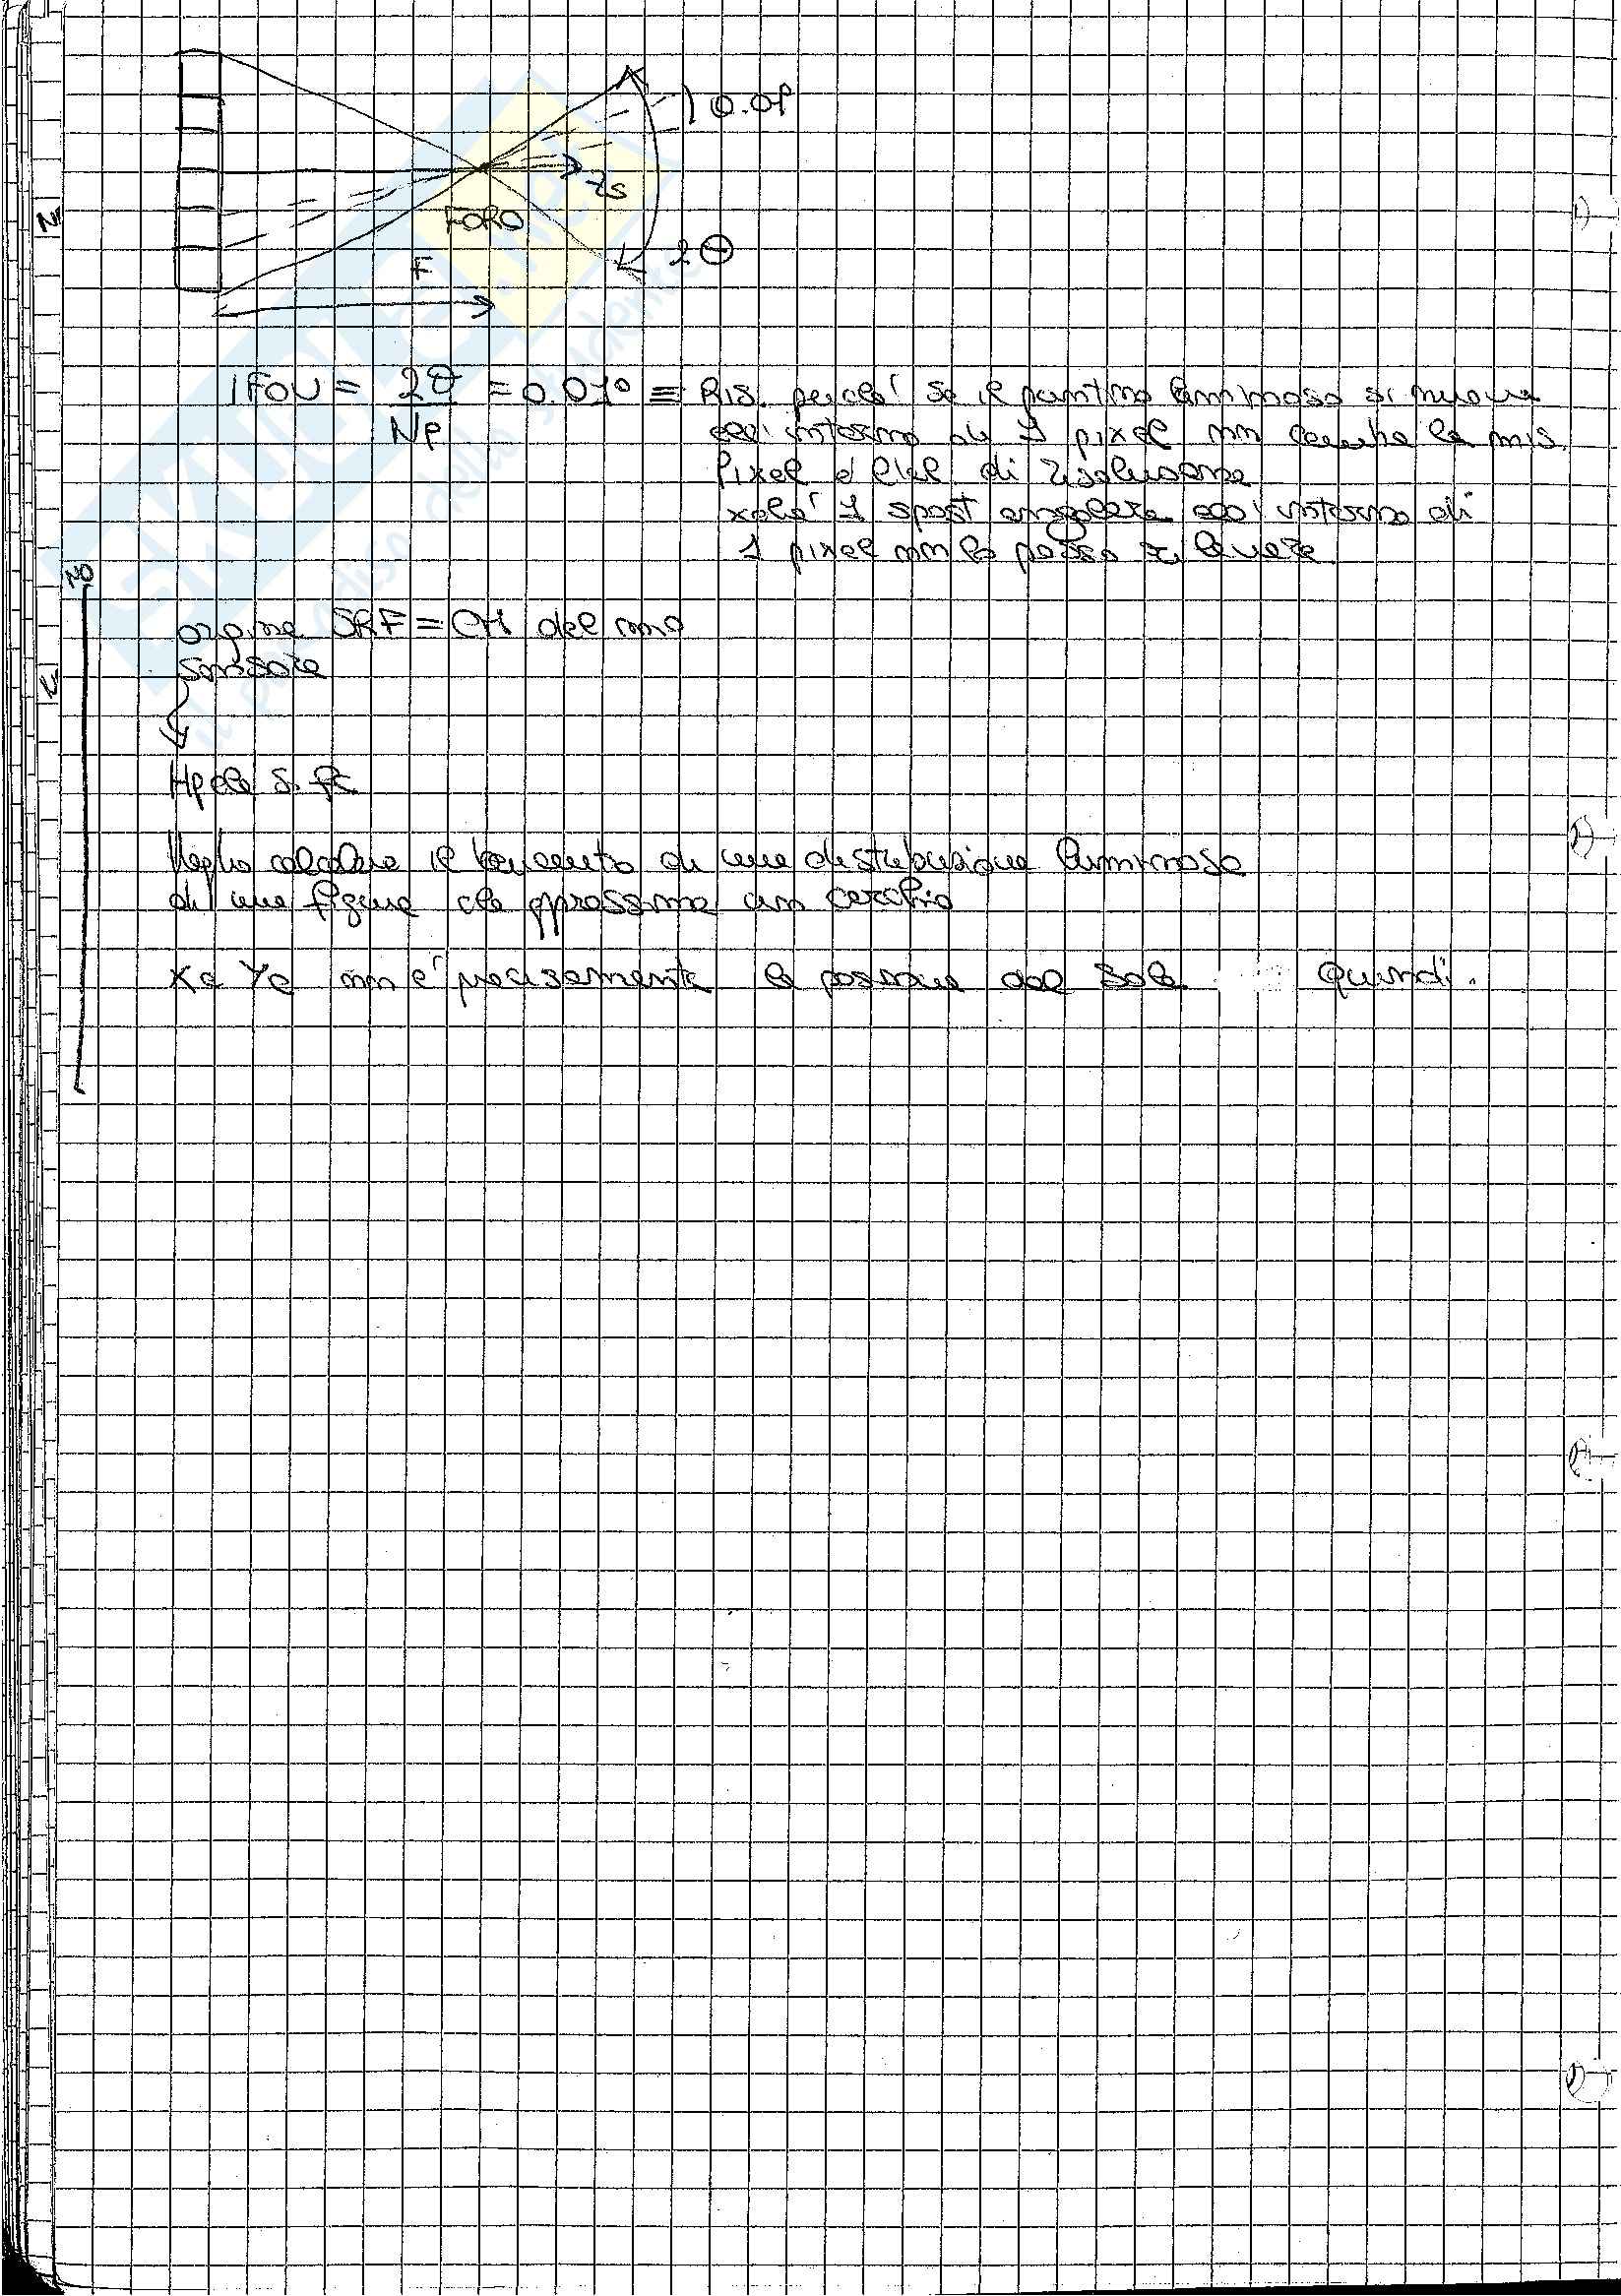 0.01
Zs
FORO
2Θ
F
IFOV = 2θ / Np = 0.01° ≡ Ris. perché se il puntino luminoso si muove
all'interno di 1 pixel nn cambia la mis.
Pixel è l'el. di risoluzione
xché 1 spost angolare all'interno di
1 pixel nn lo posso rilevare
NO
origine SRF = CM del mio
sensore
Hp che si fa
Voglio calcolare il baricentro di una distribuzione luminosa
di una figura che approssima un cerchio
Xc Yc nn è precisamente la posizione del Sole quindi.